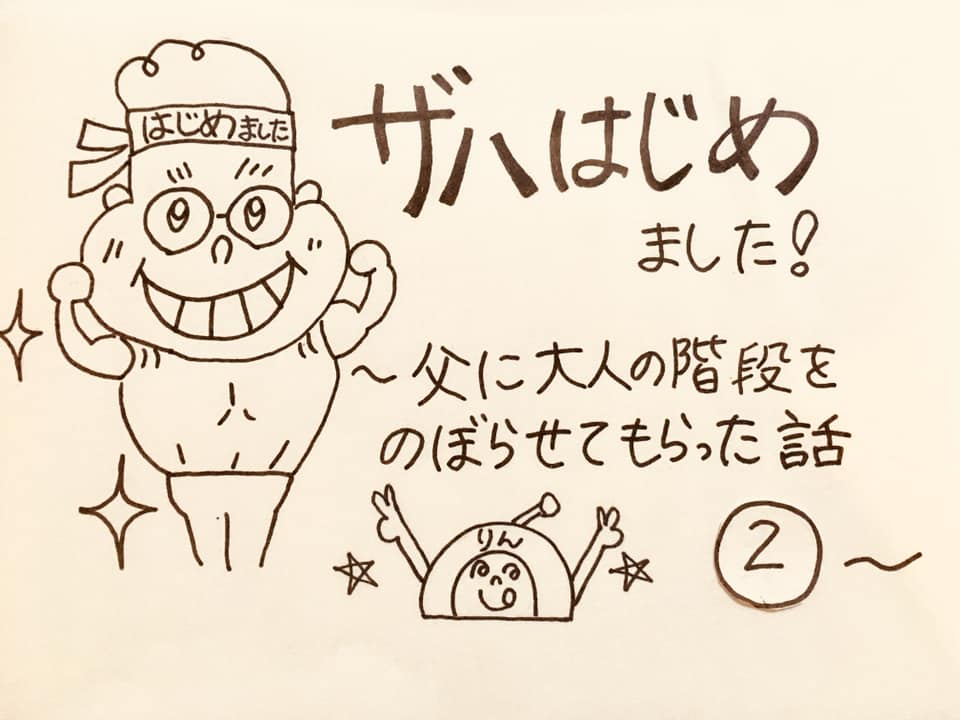 はじめました
ザハはじめ
ました!
～父に大人の階段を
のぼらせてもらった話
りん
②～